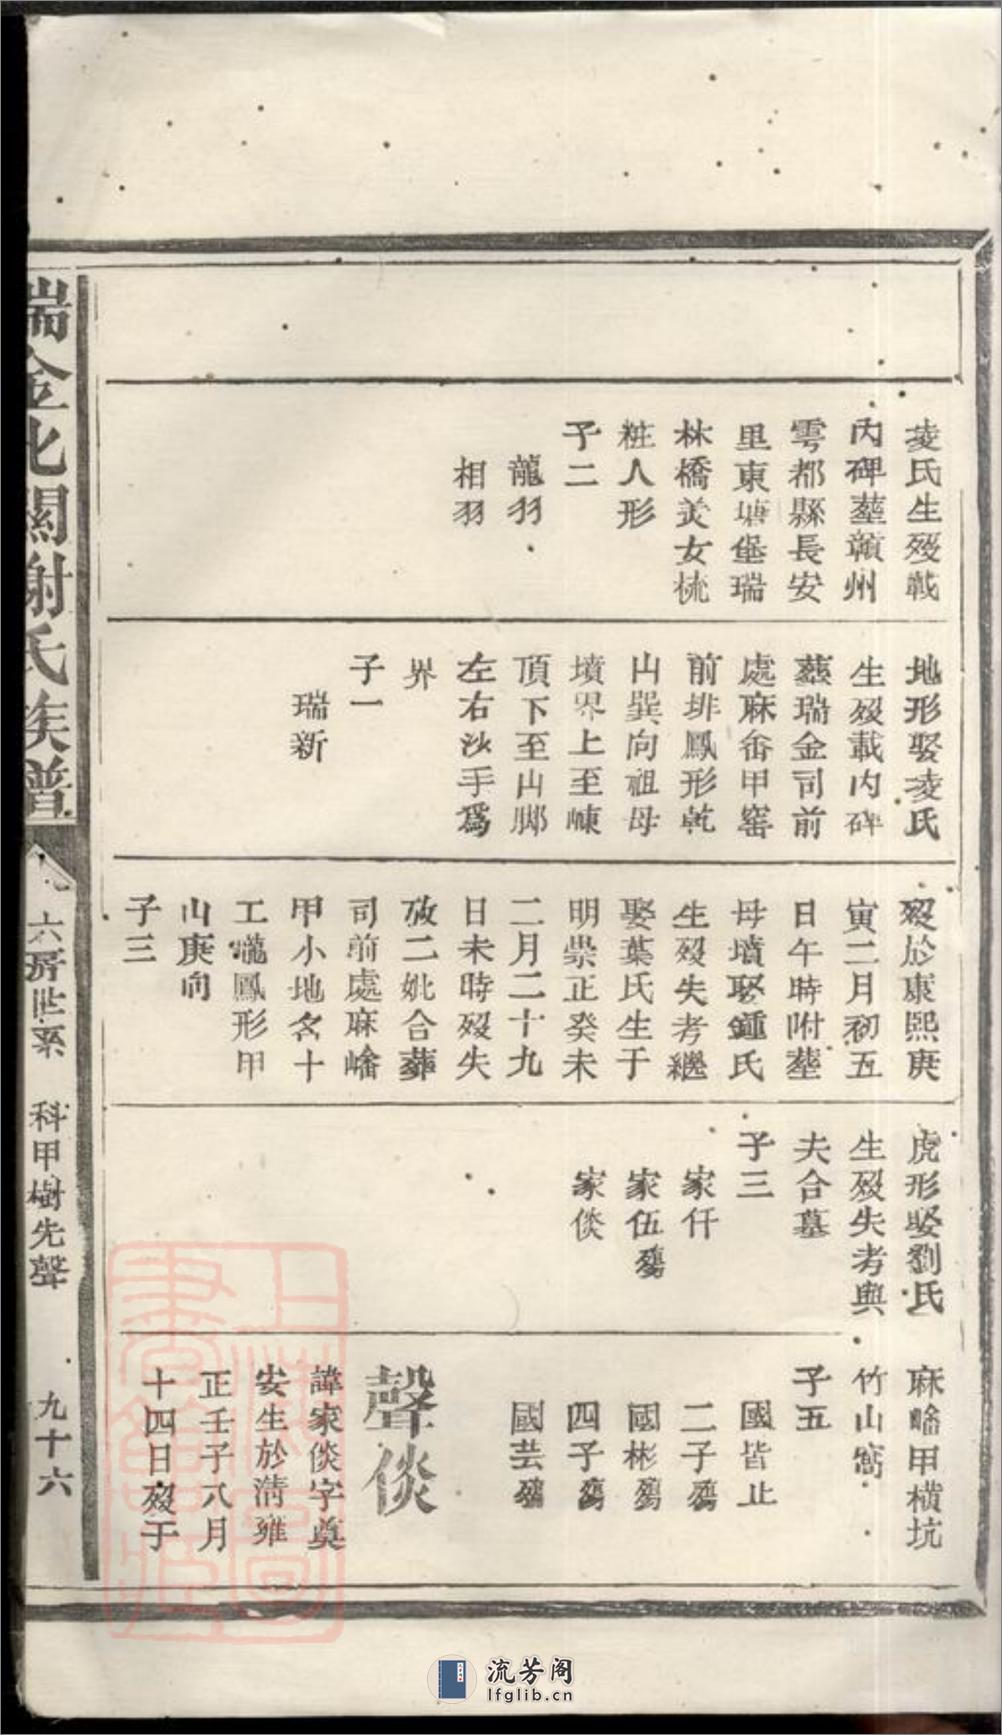 凌氏生歿載
內碑葬贛州
雩都縣長安
里東塘堡瑞
林橋美女梳
粧人形
子二
龍羽
相羽
地形娶凌氏
生歿載內碑
葬瑞金司前
處麻畲甲窰
前排鳳形乾
山巽向祖母
墳界上至崠
頂下至山脚
左右沙手爲
界
子一
瑞新
歿於康熙庚
寅二月初五
日午時附葬
母墳娶鍾氏
生歿失考繼
娶葉氏生于
明崇正癸未
二月二十九
日未時歿失
攷二妣合葬
司前處麻嵞
甲小地名十
工壠鳳形甲
山庚向
子三
虎形娶劉氏
生歿失考與
夫合墓
子三
家仟
家伍殤
家倓
麻嵞甲橫坑
竹山窩
子五
國皆止
二子殤
國彬殤
四子殤
國芸殤
聲倓
諱家倓字奠
安生於清雍
正壬子八月
十四日歿于
瑞金北關謝氏族譜
六房世系
科甲樹先聲
九十六
流芳阁
lfglib.cn